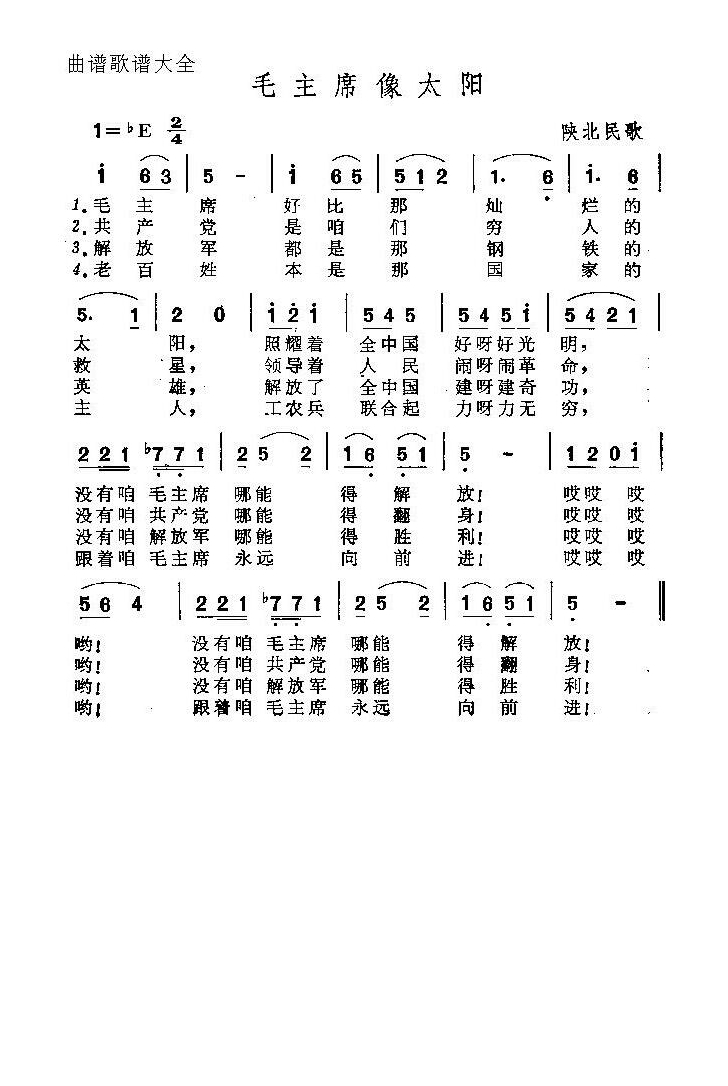 曲谱歌谱大全
毛主席像太阳
1=♭E 2/4 陕北民歌
i 63 | 5 - | i 65 | 512 | 1. 6 | i. 6 |
1.毛主席好比那灿烂的
2.共产党是咱们穷人的
3.解放军都是那钢铁的
4.老百姓本是那国家的
5. 1 | 2 0 | i 2 i | 545 | 545i | 5421 |
太阳，照耀着全中国好呀好光明，
救星，领导着人民闹呀闹革命，
英雄，解放了全中国建呀建奇功，
主人，工农兵联合起力呀力无穷，
221 ♭771 | 25 2 | 16 51 | 5 - | 120i |
没有咱毛主席哪能得解放！哎哎哎
没有咱共产党哪能得翻身！哎哎哎
没有咱解放军哪能得胜利！哎哎哎
跟着咱毛主席永远向前进！哎哎哎
56 4 | 221 ♭771 | 25 2 | 16 51 | 5 - ‖
哟！没有咱毛主席哪能得解放！
哟！没有咱共产党哪能得翻身！
哟！没有咱解放军哪能得胜利！
哟！跟着咱毛主席永远向前进！